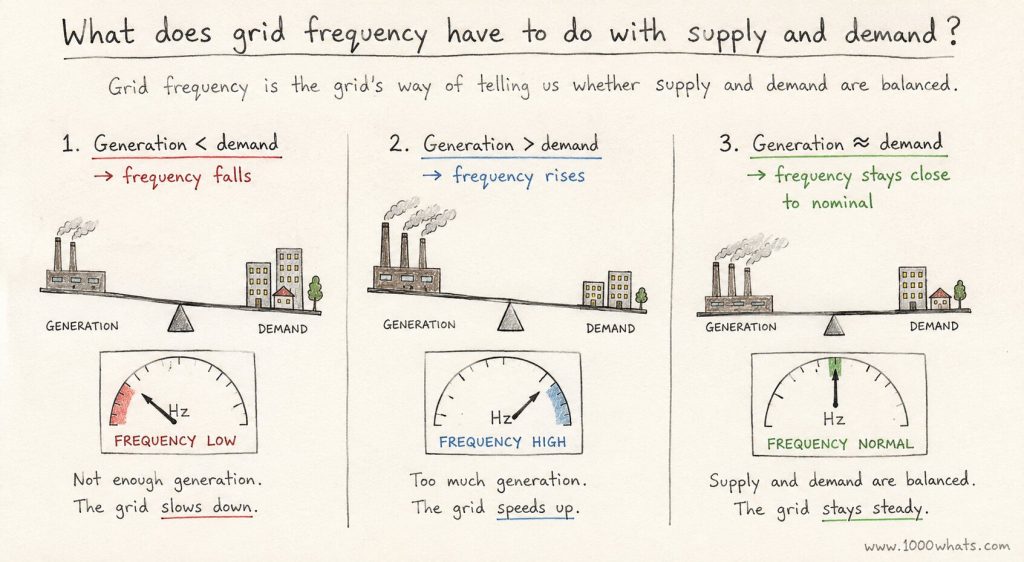 What does grid frequency have to do with supply and demand?
Grid frequency is the grid's way of telling us whether supply and demand are balanced.
1. Generation < demand
→ frequency falls
GENERATION
DEMAND
Hz
FREQUENCY LOW
Not enough generation.
The grid slows down.
2. Generation > demand
→ frequency rises
GENERATION
DEMAND
Hz
FREQUENCY HIGH
Too much generation.
The grid speeds up.
3. Generation ≈ demand
→ frequency stays close
to nominal
GENERATION
DEMAND
Hz
FREQUENCY NORMAL
Supply and demand are balanced.
The grid stays steady.
www.1000whats.com